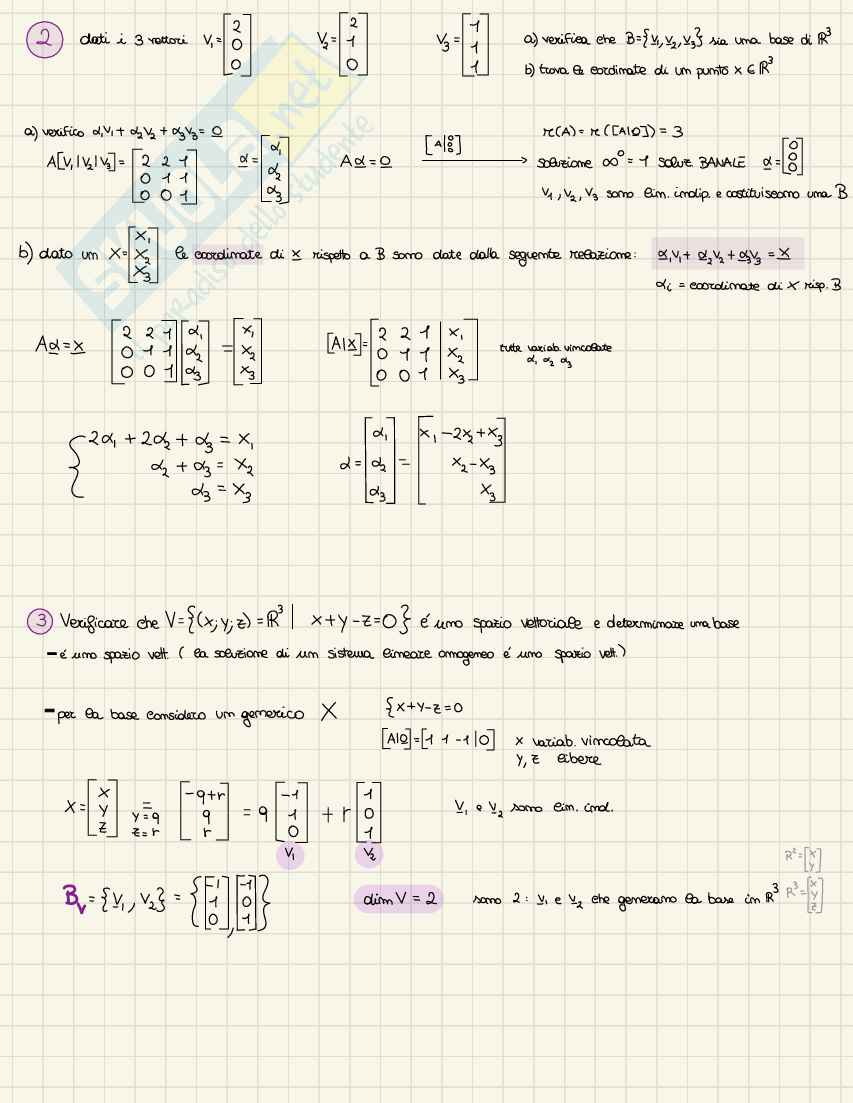 2 dati i 3 vettori V₁=[2 0 0] V₂=[2 1 0] V₃=[1 1 1] a) verifica che B={v₁,v₂,v₃} sia una base di ℝ³
b) trova le cordinate di un punto x ∈ ℝ³
a) verifico α₁v₁+α₂v₂+α₃v₃=0 r(A)=r([A|0])=3
A[V₁|V₂|V₃]=[2 2 1; 0 1 1; 0 0 1] α=[α₁ α₂ α₃] Aα=0 [A|0 0 0] → soluzione ∞⁰=1 soluz. BANALE α=[0 0 0]
V₁,V₂,V₃ sono lin. indip. e costituiscono una B
b) dato un X=[X₁ X₂ X₃] le coordinate di x rispetto a B sono date dalla seguente relazione: α₁v₁+α₂v₂+α₃v₃=x
αᵢ = coordinate di X risp. B
Aα=x [2 2 1; 0 1 1; 0 0 1][α₁ α₂ α₃]=[x₁ x₂ x₃] [A|x]=[2 2 1 | x₁; 0 1 1 | x₂; 0 0 1 | x₃] tutte variab. vincolate
α₁ α₂ α₃
{2α₁+2α₂+α₃=x₁
α₂+α₃=x₂
α₃=x₃
α=[α₁ α₂ α₃]=[x₁-2x₂+x₃ x₂-x₃ x₃]
3 Verificare che V={(x;y;z)=ℝ³ | x+y-z=0} é uno spazio vettoriale e determinare una base
- é uno spazio vett. (la soluzione di un sistema lineare omogeneo é uno spazio vett.)
- per la base considero un generico X {x+y-z=0
[A|0]=[1 1 -1|0] x variab. vincolata
y,z libere
X=[x y z] = y=q z=r [-q+r q r] = q[-1 1 0] + r[1 0 1] v₁ e v₂ sono lin. ind.
V₁ V₂
B_V={v₁,v₂}={[-1 1 0],[-1 0 1]} dim V=2 sono 2: v₁ e v₂ che generano la base in ℝ³
R²=[x y]
R³=[x y z]
SKUOLA.net
il paradiso dello studente